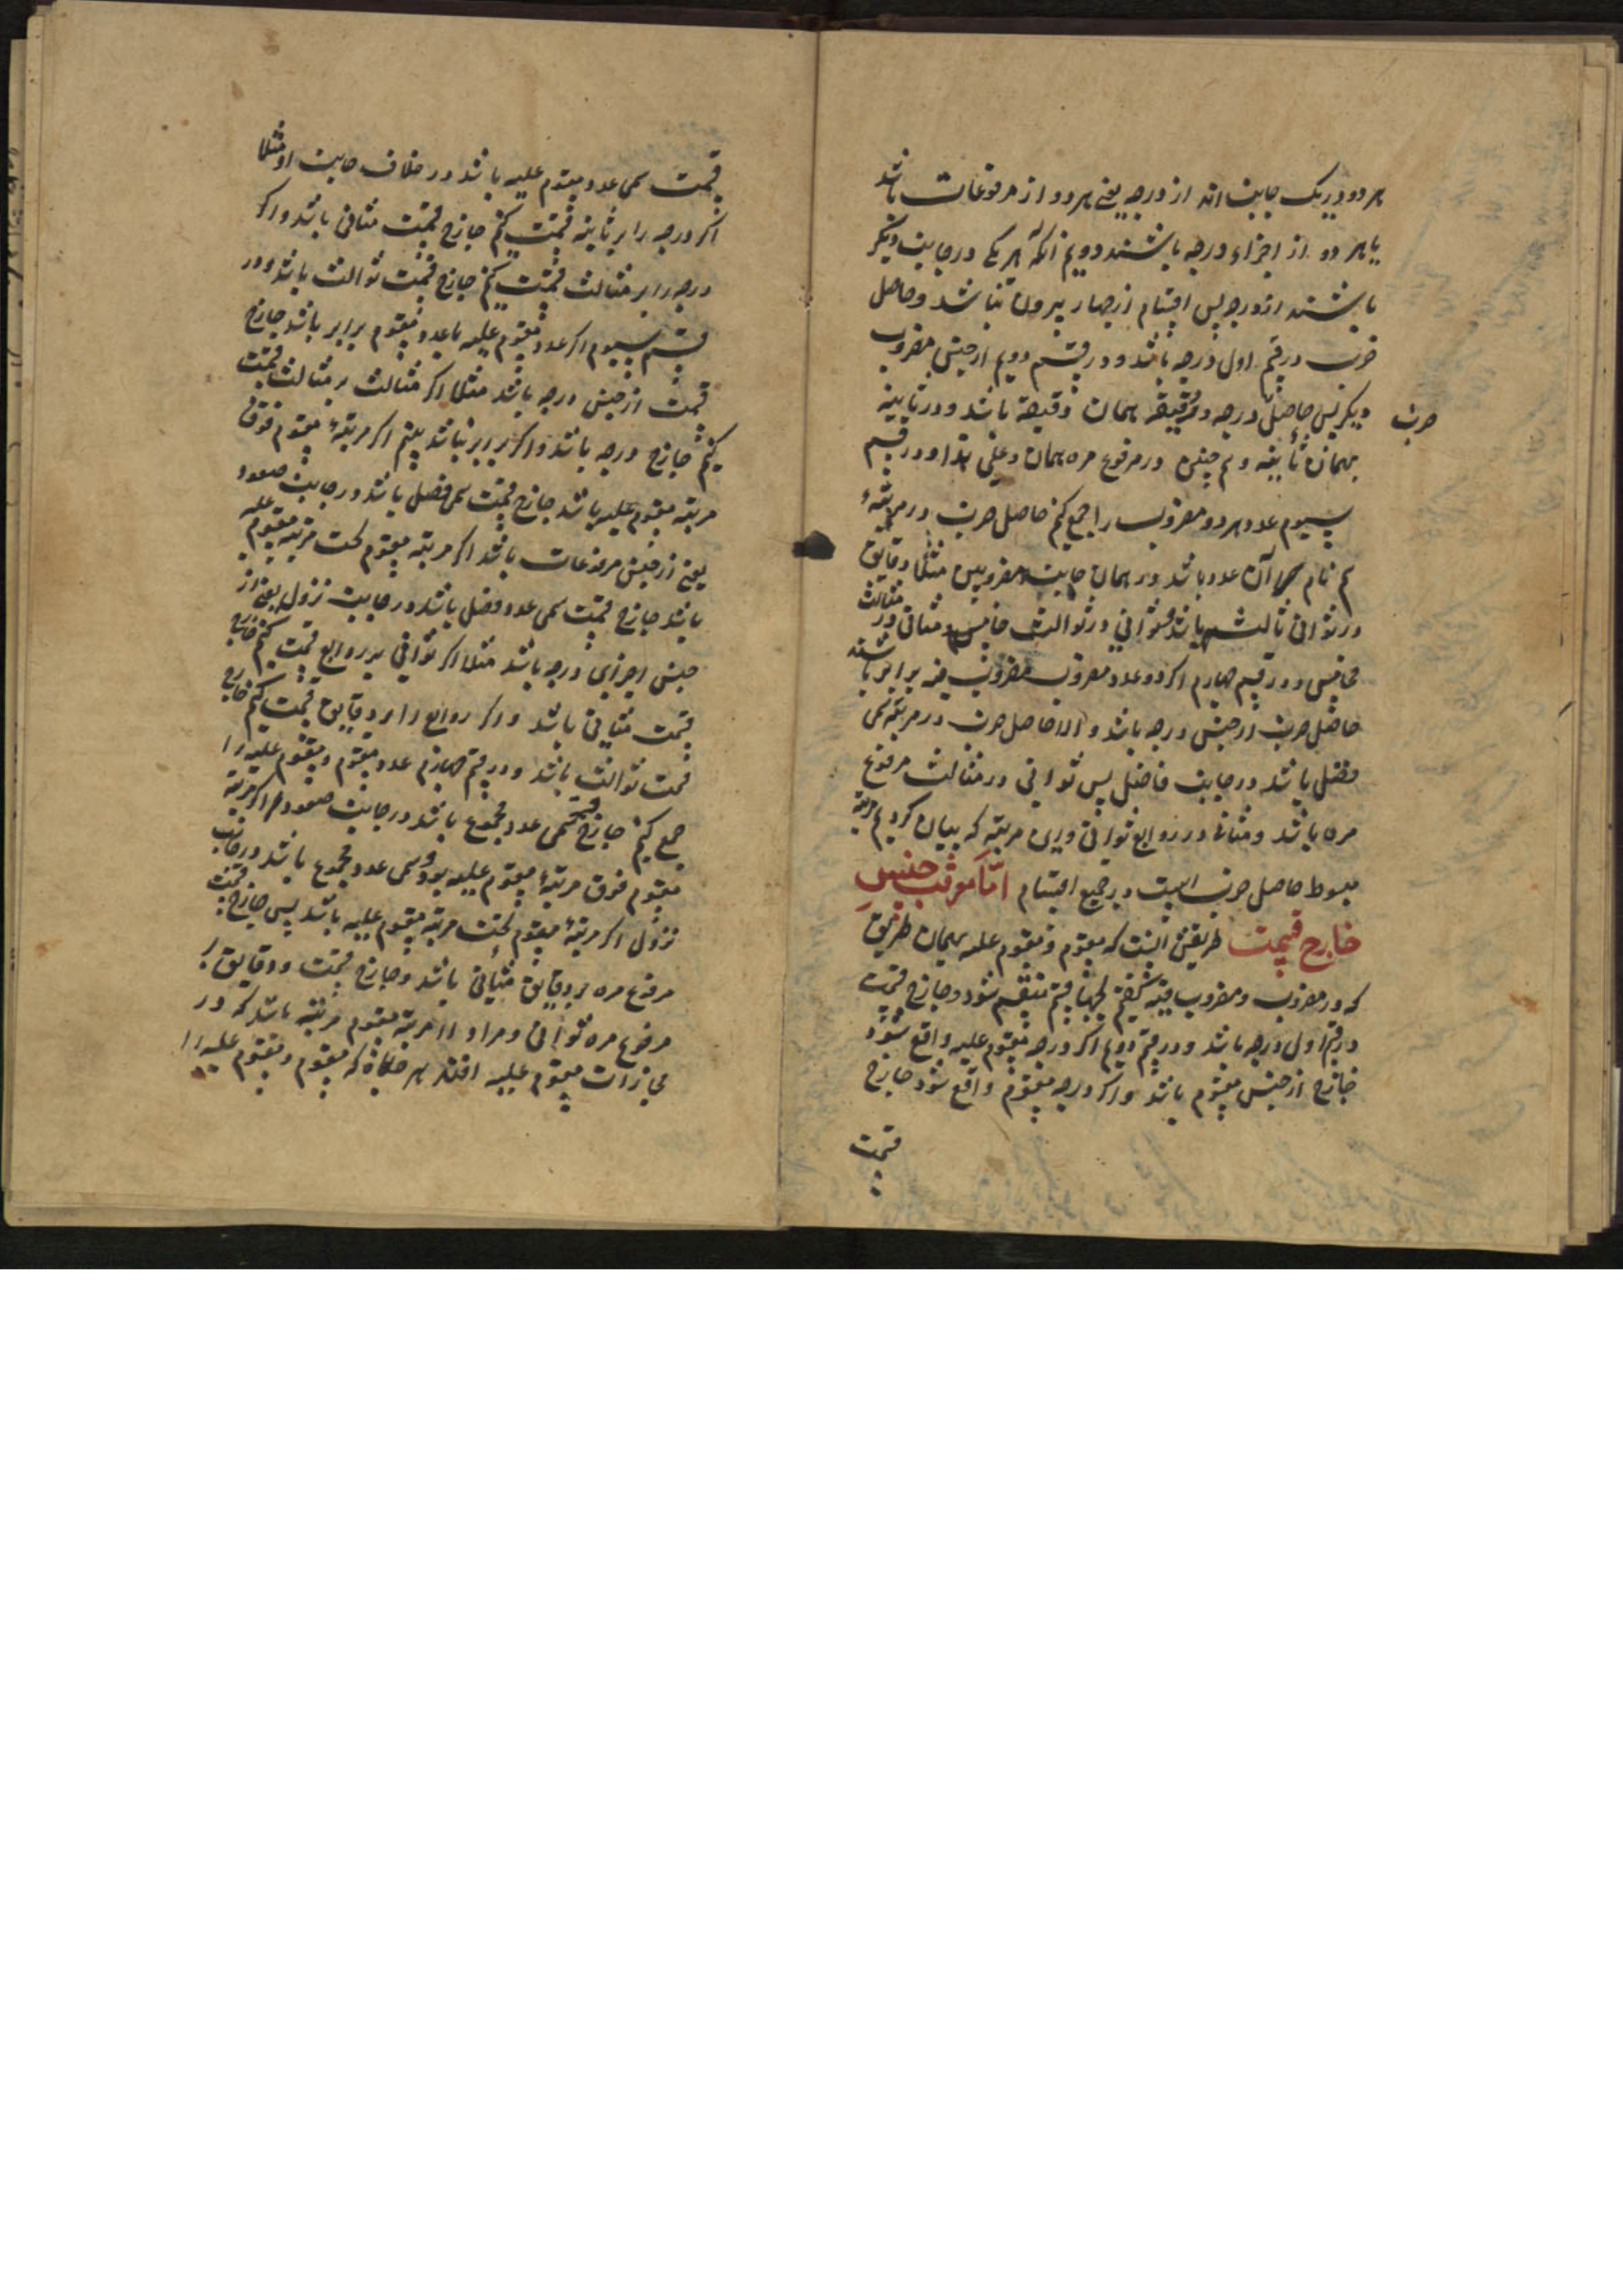 هر دو در یک جانب اند از درجه یعنی هر دو از مرفوعات باشد
یا هر دو از اجزاء درجه باشند دویم آنکه هر یکی در جانب دیگر
باشند از درجه پس اقسام از چهار بیرون نباشد و حاصل
ضرب در قسم اول درجه باشد و در قسم دویم از جنس مضروب
دیگر پس حاصل درجه و دقیقه همان دقیقه باشد و در ثانیه
ضرب
همان ثانیه و هم چنین در مرفوع مره همان و علی هذا و در قسم
سیوم عدد هر دو مضروب را جمع کنم حاصل ضرب در مرتبهٔ
هم نام آن عدد باشد در همان جانب مضروبین مثلا دقایق
در ثوانی ثالث باشد و ثوانی در ثوالث خامس و مثانی در مثالث
مخامس و در قسم چهارم اگر دو عدد مضروب مضروب فیه برابر باشند
حاصل ضرب از جنس درجه باشد و الا حاصل ضرب در مرتبه سمی
فضل باشد در جانب فاضل پس ثوانی در مثالث مرفوع
مره باشد و مثانی در روابع ثوانی و این مرتبه که بیان کردیم مرتبه
مبسوط حاصل ضرب است در جمیع اقسام اما مرتب جنس
خارج قسمت طریقش آنست که مقسوم و مقسوم علیه بهمان طریق
که در مضروب و مضروب فیه گفتیم بچهار قسم منقسم شود و خارج قسمت
در قسم اول درجه باشد و در قسم دویم اگر درجه مقسوم علیه واقع شود
خارج از جنس مقسوم باشد و اگر درجه مقسوم واقع شود خارج
قسمت
قسمت سمی عدد مقسوم علیه باشد در خلاف جانب او مثلا
اگر درجه را بر ثانیه قسمت کنم خارج قسمت مثانی باشد و اگر
درجه را بر مثالث قسمت کنم خارج قسمت ثوالث باشد و در
قسم سیوم اگر عدد مقسوم علیه با عدد مقسوم برابر باشد خارج
قسمت از جنس درجه باشد مثلا اگر مثالث بر مثالث قسمت
کنم خارج درجه باشد و اگر برابر نباشد بینم اگر مرتبهٔ مقسوم فوق
مرتبه مقسوم علیه باشد خارج قسمت سمی فضل باشد در جانب صعود
یعنی از جنس مرفوعات باشد اگر مرتبه مقسوم تحت مرتبه مقسوم علیه
باشد خارج قسمت سمی عدد فضل باشد در جانب نزول یعنی از
جنس اجزای درجه باشد مثلا اگر ثوانی بر روابع قسمت کنم خارج
قسمت مثانی باشد و اگر روابع را بر دقایق قسمت کنم خارج
قسمت ثوالث باشد و در قسم چهارم عدد مقسوم و مقسوم علیه را
جمع کنم خارج قسمت سمی عدد مجموع باشد در جانب صعود اگر مرتبه
مقسوم فوق مرتبهٔ مقسوم علیه بود و سمی عدد مجموع باشد در جانب
نزول اگر مرتبهٔ مقسوم تحت مرتبه مقسوم علیه باشد پس خارج قسمت
مرفوع مره بر دقایق مثانی باشد و خارج قسمت دقایق بر
مرفوع مره ثوانی و مراد از مرتبه مقسوم مرتبه باشد که در
محاذات مقسوم علیه افتد که مقسوم و مقسوم علیه را